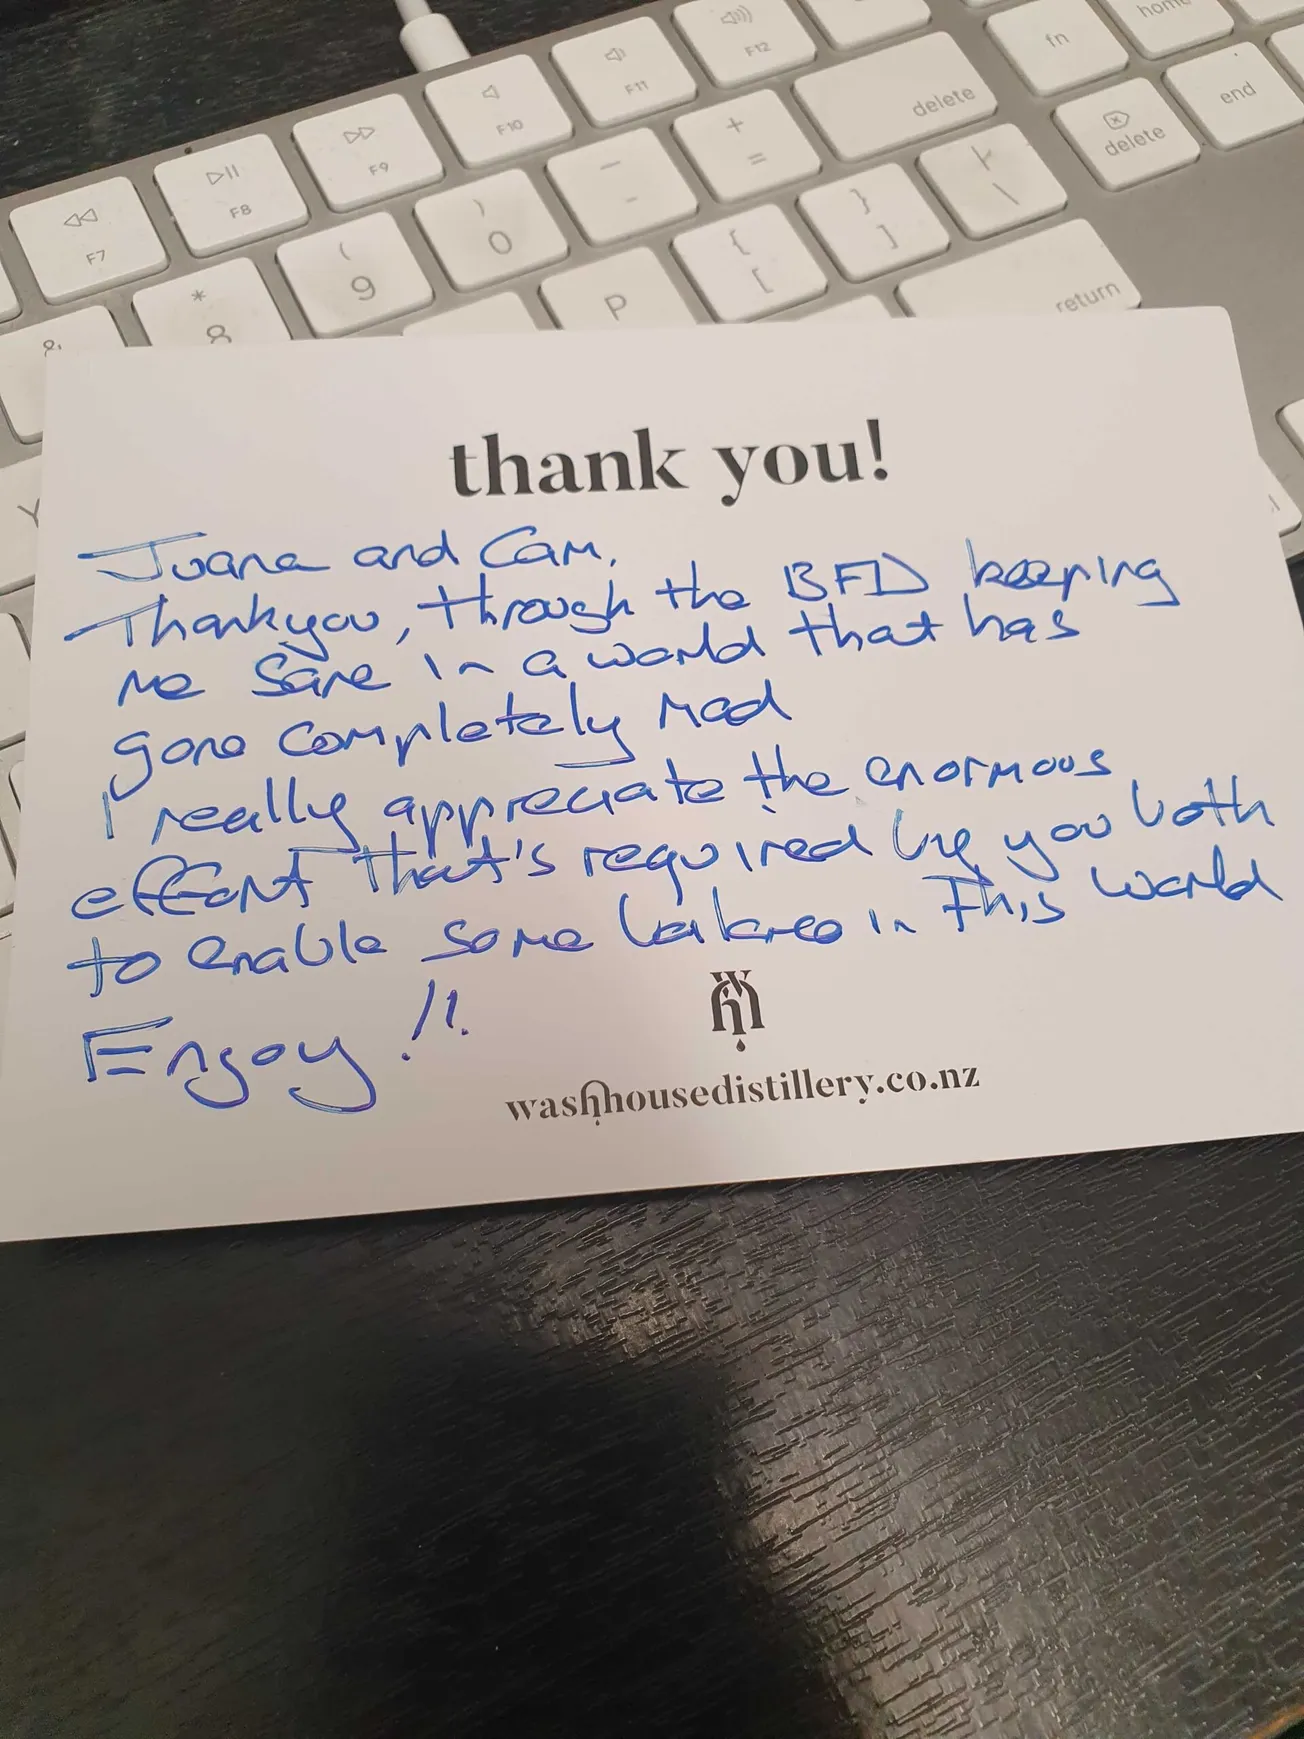 F7
F8
F9
F10
F11
F12
delete
fn
home
delete
end
&
*
8
(
9
)
0
—
-
+
=
P
{
[
}
]
\
return
Y
thank you!
Juana and Cam,
Thankyou, through the BFD keeping
me sane in a world that has
gone completely mad
I really appreciate the enormous
effort that's required by you both
to enable some balance in this world
Enjoy!!
washhousedistillery.co.nz